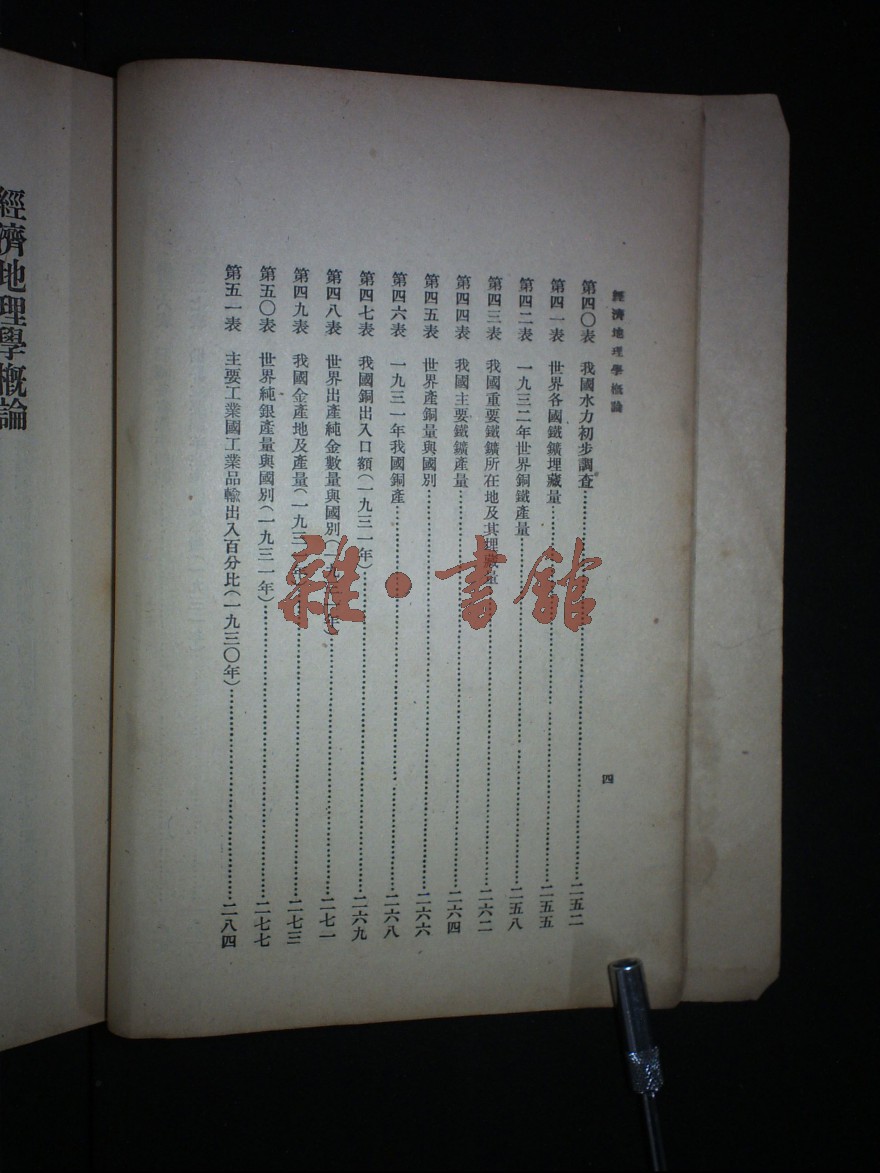 經濟地理學概論
四
第四〇表 我國水力初步調查……二五二
第四一表 世界各國鐵鑛埋藏量……二五五
第四二表 一九三二年世界銅鐵產量……二五八
第四三表 我國重要鐵鑛所在地及其埋藏量……二六二
第四四表 我國主要鐵鑛產量……二六四
第四五表 世界產銅量與國別……二六六
第四六表 一九三一年我國銅產……二六八
第四七表 我國銅出入口額(一九三一年)……二六九
第四八表 世界出產純金數量與國別(一九三一年)……二七一
第四九表 我國金產地及產量(一九三一年)……二七三
第五〇表 世界純銀產量與國別(一九三一年)……二七七
第五一表 主要工業國工業品輸出入百分比(一九三〇年)……二八四
經濟地理學概論
雜·書館